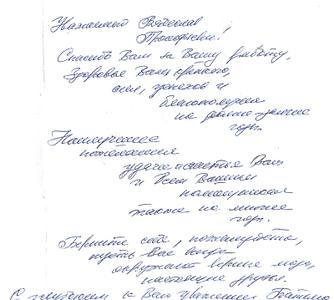 Уважаемый Вячеслав
Тимофеевич!
Спасибо Вам за Вашу работу,
Здоровья Вам крепкого,
сил, успехов и
благополучия
на долгие-долгие
годы.
Наилучшие
пожелания
удачи и счастья Вам
и всем Вашим
помощникам
также на многие
годы.
Берегите себя, пожалуйста,
пусть Вас всегда
окружают верные люди,
настоящие друзья.
С глубоким к Вам уважением